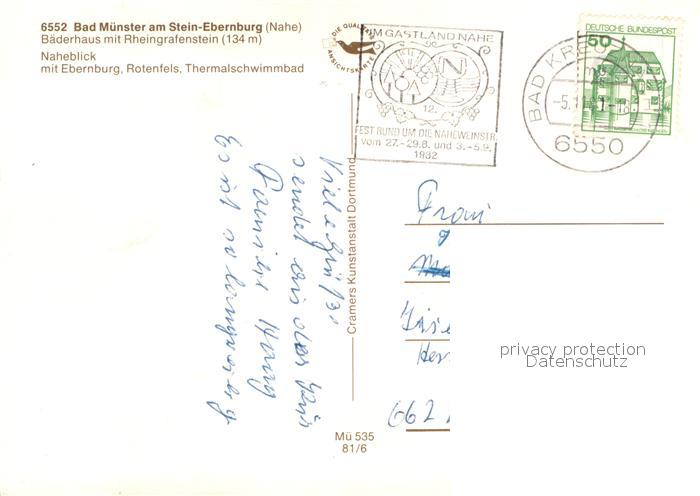 6552 Bad Münster am Stein-Ebernburg (Nahe)
Bäderhaus mit Rheingrafenstein (134 m)
Naheblick
mit Ebernburg, Rotenfels, Thermalschwimmbad
DIE QUALITÄTS
ANSICHTSKARTE
IM GASTLAND NAHE
N
12.
FEST RUND UM DIE NAHEWEINSTR.
vom 27.-29.8. und 3.-5.9.
1982
BAD KREU
-5.
6550
DEUTSCHE BUNDESPOST
50
Viele Grüße
sendet aus der
Familie
Es ist so langweilig
Cramers Kunstanstalt Dortmund
Frau
662
privacy protection
Datenschutz
Mü 535
81/6